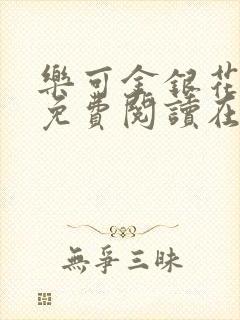 樂可金銀花
免費閱讀在
無爭三昧